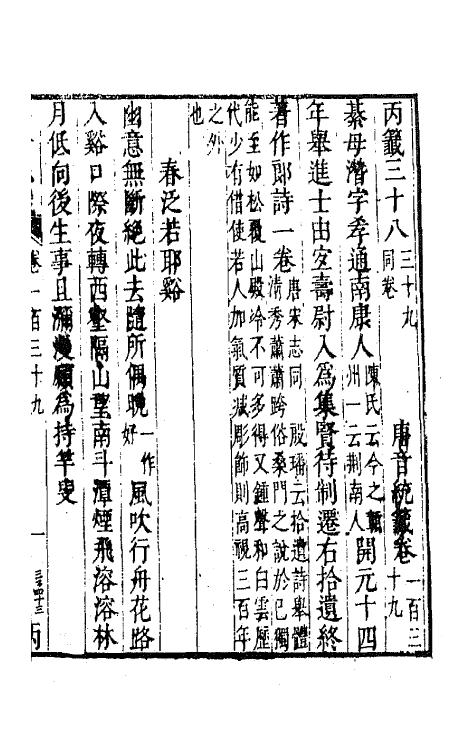 丙籤三十八三十九同卷 唐音統籤卷一百三十九
綦母潛字孝通南康人陳氏云今之贛州一云荆南人開元十四
年舉進士由宜壽尉入為集賢待制遷右拾遺終
著作郎詩一卷唐宋志同 殷璠云拾遺詩舉體清秀蕭蕭跨俗桑門之說於已獨
能至如松覆山殿冷不可多得又鍾聲和白雲歷代少有借使若人加氣質減彫飾則高視三百年
之外也
春泛若耶谿
幽意無斷絕此去隨所偶晚一作好風吹行舟花路
入谿口際夜轉西壑隔山望南斗潭煙飛溶溶林
月低向後生事且瀰漫願為持竿叟
卷一百三十九 一 丙